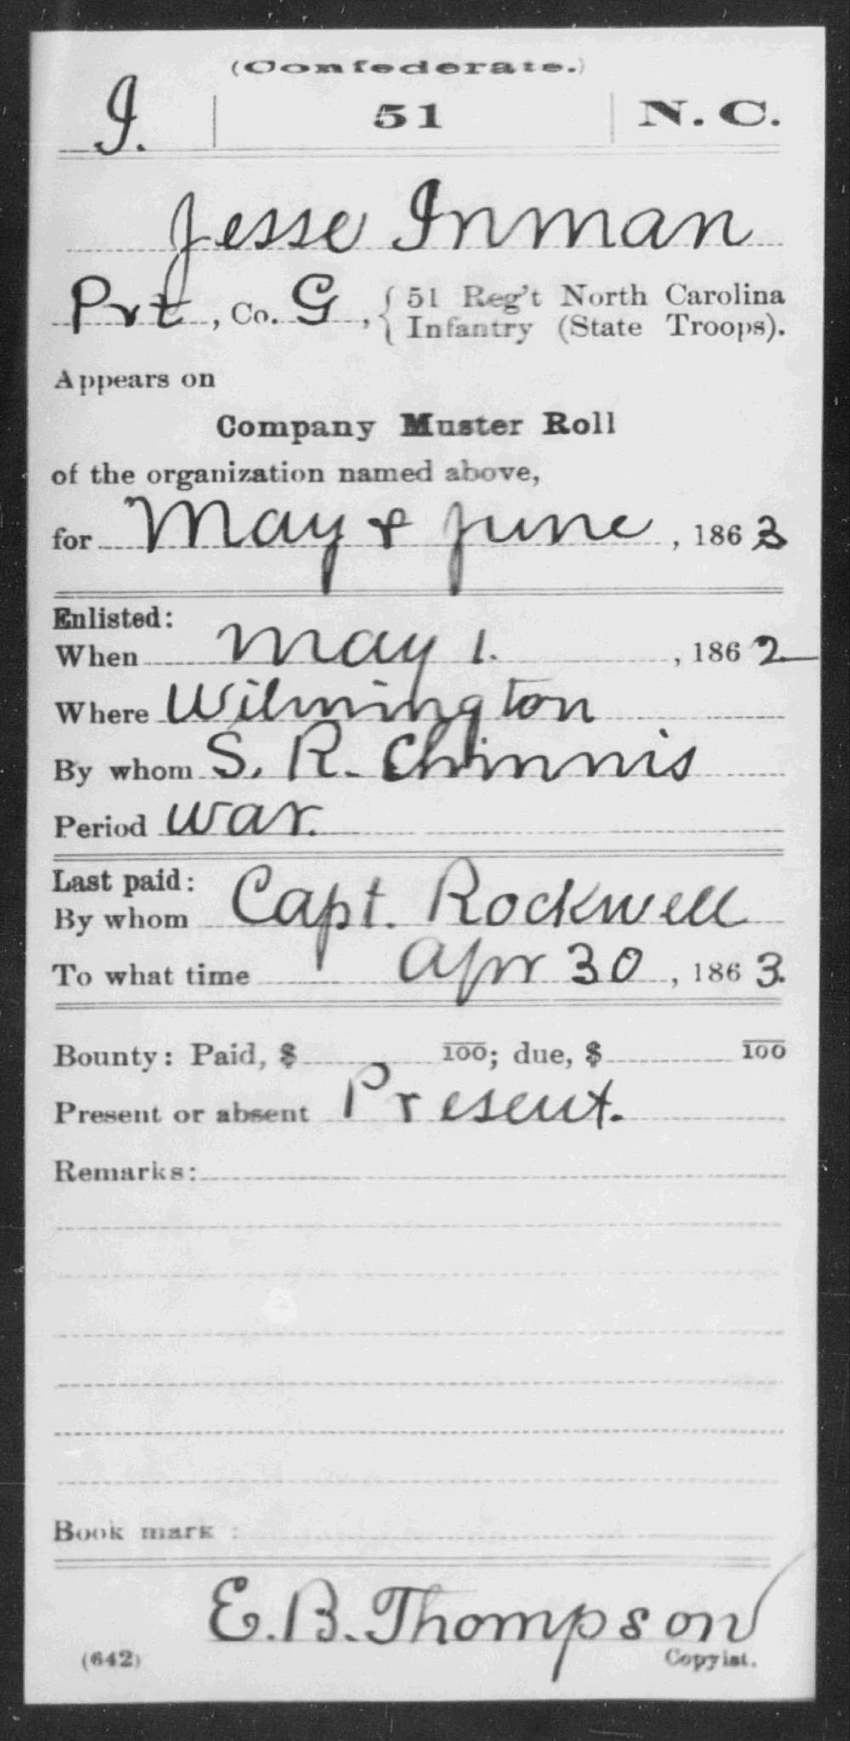 (Confederate.)
I. 51 N. C.
Jesse Inman
Pvt, Co. G, { 51 Reg't North Carolina
Infantry (State Troops).
Appears on
Company Muster Roll
of the organization named above,
for May & June, 1863
Enlisted:
When May 1., 1862
Where Wilmington
By whom S. R. Chinnis
Period War.
Last paid:
By whom Capt. Rockwell
To what time Apr 30, 1863.
Bounty: Paid, $ 100; due, $ 100
Present or absent Present.
Remarks:
Book mark :
E. B. Thompson
(642) Copyist.